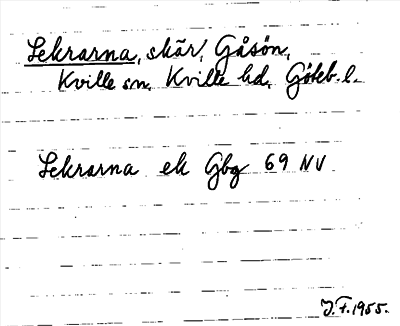 Lekrarna, skär, Gåsön,
Kville sn, Kville hd, Göteb. l.
Lekrarna ek Gbg 69 NV
J.F. 1955.